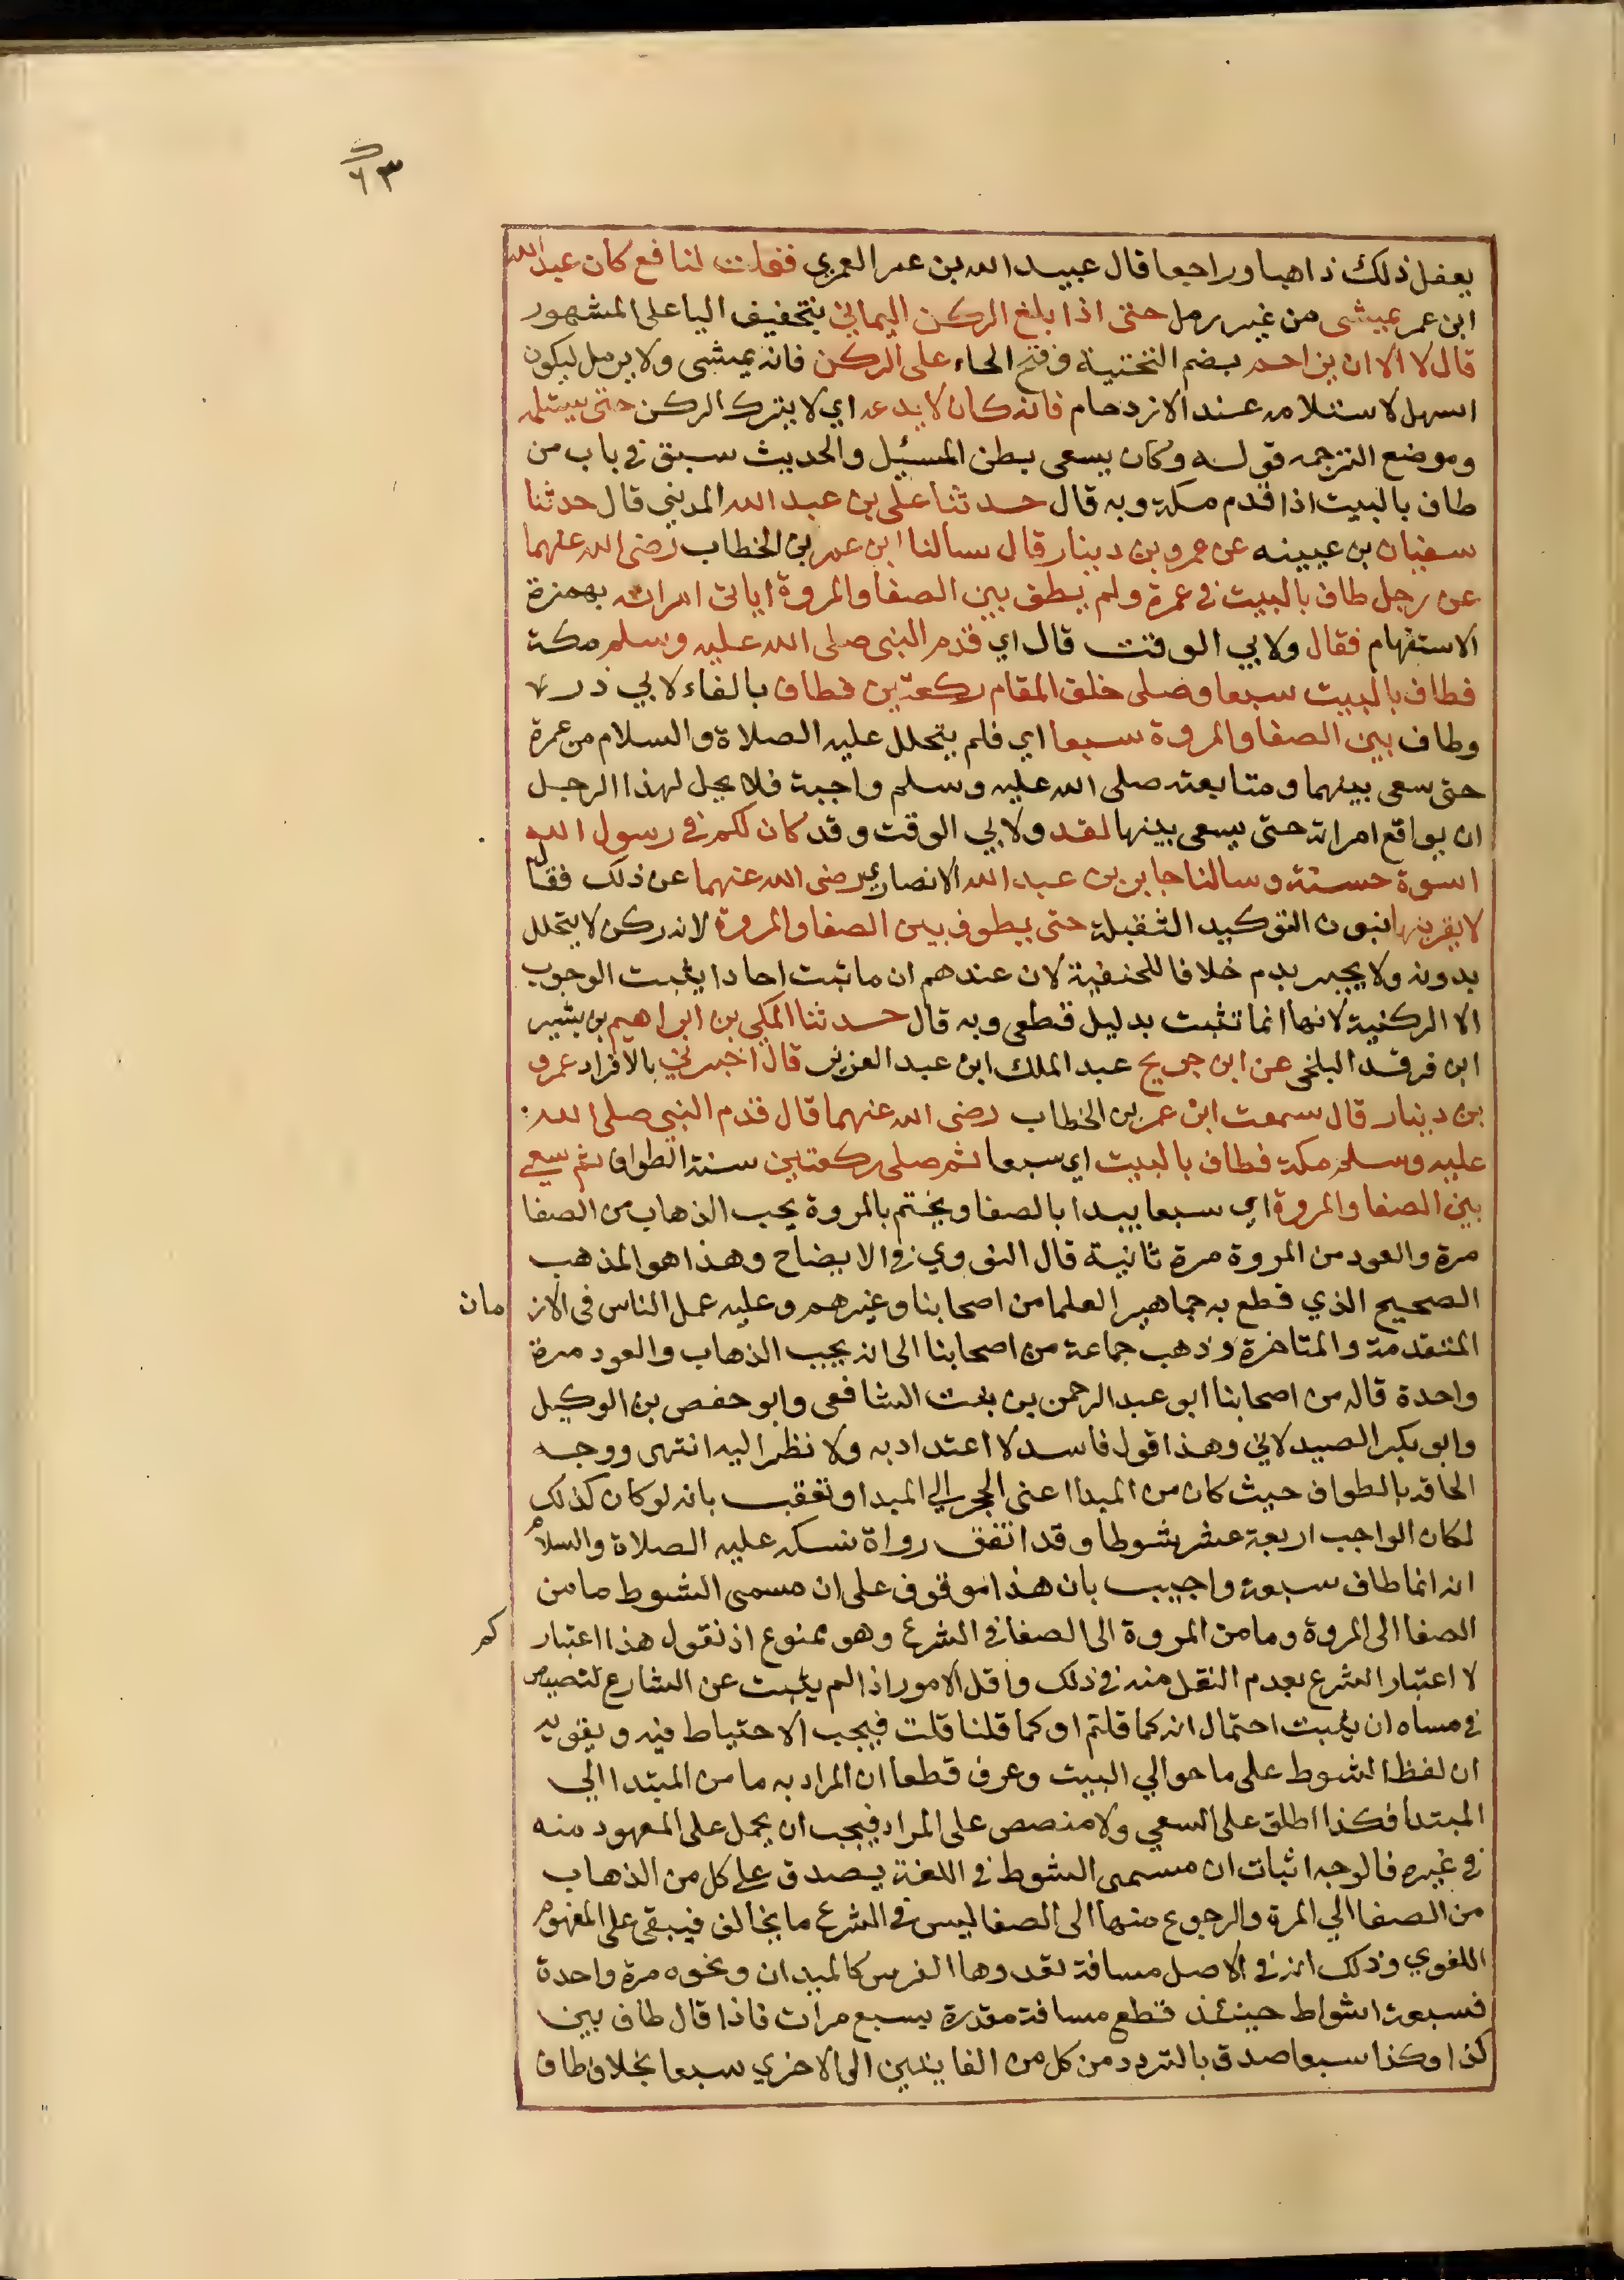 ٦٣
يفعل ذلك ذاهبا وراجعا قال عبيد الله بن عمر العمري فقلت لنافع كان عبد الله
ابن عمر يمشي من غير رمل حتى اذا بلغ الركن اليماني بتخفيف اليا على المشهور
قال لا الا ان يزاحم بضم التحتية وفتح الحاء على الركن فانه يمشي ولا يرمل ليكون
اسهل لاستلامه عند الازدحام فانه كان لا يدعه اي لا يترك الركن حتى يستلمه
وموضع الترجمه قوله وكان يسعى بطن المسيل والحديث سبق في باب من
طاف بالبيت اذا قدم مكة وبه قال حدثنا علي بن عبد الله المديني قال حدثنا
سفيان بن عيينه عن عمرو بن دينار قال سالنا ابن عمر بن الخطاب رضى الله عنهما
عن رجل طاف بالبيت في عمرة ولم يطف بين الصفا والمروة اياتي امراته بهمزة
الاستفهام فقال ولابي الوقت قال اي قدم النبى صلى الله عليه وسلم مكة
فطاف بالبيت سبعا وصلى خلف المقام ركعتين فطاف بالفاء لابي ذر
وطاف بين الصفا والمروة سبعا اي فلم يتحلل عليه الصلاة والسلام من عمرة
حتى سعى بينهما ومتابعته صلى الله عليه وسلم واجبة فلا يحل لهذا الرجل
ان يواقع امراته حتى يسعى بينها لقد ولابي الوقت وقد كان لكم في رسول الله
اسوة حسنة وسالنا جابر بن عبد الله الانصاري رضى الله عنهما عن ذلك فقال
لا يقربنها بنون التوكيد الثقيلة حتى يطوف بين الصفا والمروة لانه ركن لا يتحلل
بدونه ولا يجبر بدم خلافا للحنفية لان عندهم ان ما ثبت احادا يثبت الوجوب
الا الركنية لانها انما تثبت بدليل قطعى وبه قال حدثنا المكي بن ابراهيم بن بشير
ابن فرقد البلخى عن ابن جريج عبد الملك ابن عبد العزيز قال اخبرني بالافراد عمرو
بن دينار قال سمعت ابن عمر بن الخطاب رضى الله عنهما قال قدم النبي صلى الله
عليه وسلم مكة فطاف بالبيت اي سبعا ثم صلى ركعتين سنة الطواف ثم سعى
بين الصفا والمروة اي سبعا يبدا بالصفا ويختم بالمروة يحب الذهاب من الصفا
مرة والعود من المروة مرة ثانية قال النووي في الايضاح وهذا هو المذهب
الصحيح الذي قطع به جماهير العلما من اصحابنا وغيرهم وعليه عمل الناس فى الاز مان
المتقدمة والمتاخرة وذهب جماعة من اصحابنا الى انه يجب الذهاب والعود مرة
واحدة قاله من اصحابنا ابو عبد الرحمن بن بنت الشافعى وابو حفص بن الوكيل
وابو بكر الصيدلاني وهذا قول فاسد لا اعتداد به ولا نظر اليه انتهى ووجه
الحاقه بالطواف حيث كان من المبدا اعنى الحجر الي المبدا وتعقب بانه لو كان كذلك
لكان الواجب اربعة عشر شوطا وقد اتفق رواة نسكه عليه الصلاة والسلام
انه انما طاف سبعة واجيب بان هذا موقوف على ان مسمى الشوط ما من
الصفا الى المروة وما من المروة الى الصفا في الشرع وهو ممنوع اذ نقول هذا اعتبار كم
لا اعتبار الشرع بعدم النقل منه في ذلك واقل الامور اذا لم يثبت عن الشارع تنصيص
في مسماه ان يثبت احتمال انه كما قلتم او كما قلنا قلت فيجب الاحتياط فيه ويقويه
ان لفظ الشوط على ما حوالي البيت وعرف قطعا ان المراد به ما من المبتدا الي
المبتدا فكذا اطلق على السعي ولا منصص على المراد فيجب ان يحمل على المعهود منه
في غيره فالوجه اثبات ان مسمى الشوط في اللغة يصدق على كل من الذهاب
من الصفا الي المرة والرجوع منها الى الصفا ليس في الشرع ما يخالف فيبقى على المفهوم
اللغوي وذلك انه في الاصل مسافة تعدوها الفرس كالميدان ونحوه مرة واحدة
فسبعة اشواط حينئذ قطع مسافة مقدرة بسبع مرات فاذا قال طاف بين
كذا وكذا سبعا صدق بالتردد من كل من الغايتين الى الاخري سبعا بخلاف طاف